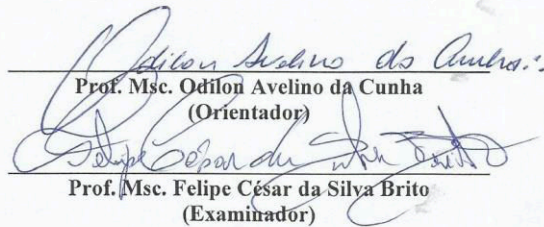 Odilon Avelino da Cunha
Prof. Msc. Odilon Avelino da Cunha
(Orientador)
Felipe César da Silva Brito
Prof. Msc. Felipe César da Silva Brito
(Examinador)